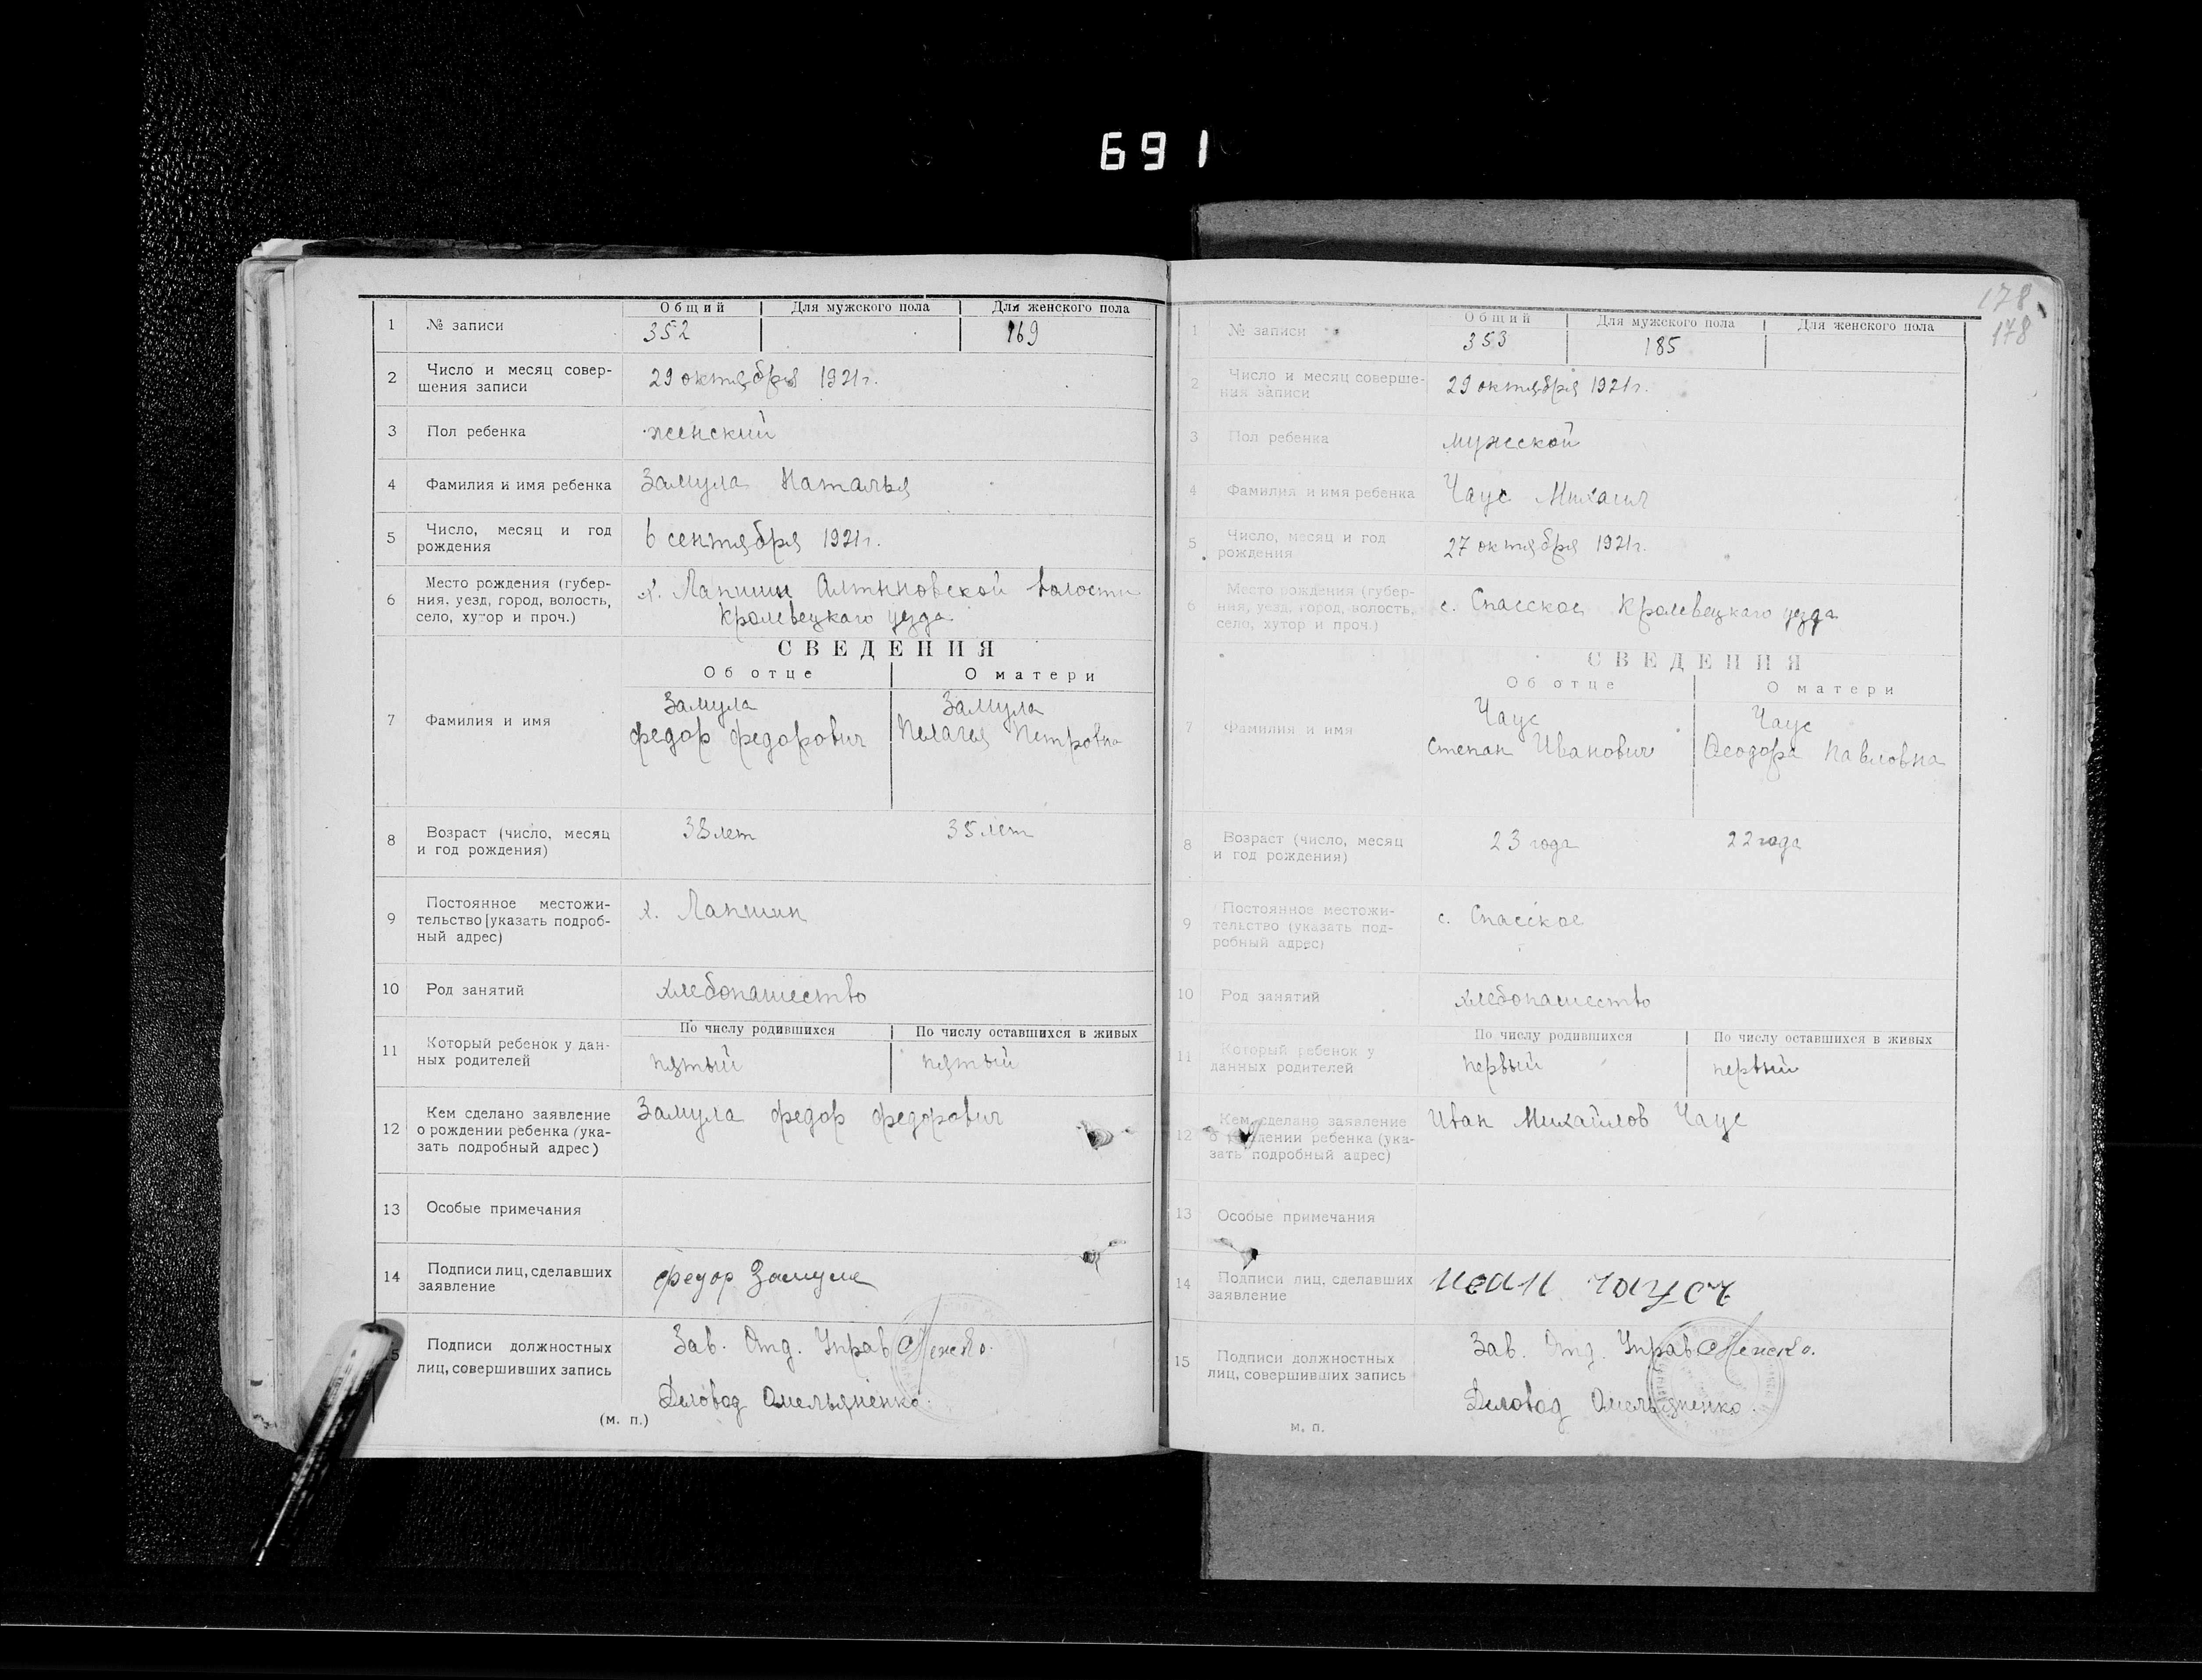 691
178
178
Общий Для мужского пола Для женского пола
1 № записи 352 169
2 Число и месяц совер-
шения записи
29 октября 1921 г.
3 Пол ребенка женский
4 Фамилия и имя ребенка Замула Наталья
5 Число, месяц и год
рождения
6 сентября 1921 г.
6 Место рождения (губер-
ния, уезд, город, волость,
село, хутор и проч.)
х. Лапшин Алтыновской волости
Кролевецкаго уезда
СВЕДЕНИЯ
Об отце О матери
7 Фамилия и имя
Замула Замула
Федор Федорович Пелагея Петровна
8 Возраст (число, месяц
и год рождения)
38 лет 35 лет
9 Постоянное местожи-
тельство (указать подроб-
ный адрес)
х. Лапшин
10 Род занятий хлебопашество
По числу родившихся По числу оставшихся в живых
11 Который ребенок у дан-
ных родителей
пятый пятый
12 Кем сделано заявление
о рождении ребенка (ука-
зать подробный адрес)
Замула Федор Федорович
13 Особые примечания
14 Подписи лиц, сделавших
заявление
Федор Замула
15 Подписи должностных
лиц, совершивших запись
Зав. Отд. Управ
Деловод Омельяненко.
(м. п.)
Общий Для мужского пола Для женского пола
1 № записи 353 185
2 Число и месяц соверше-
ния записи
29 октября 1921 г.
3 Пол ребенка мужской
4 Фамилия и имя ребенка Чаус Михаил
5 Число, месяц и год
рождения
27 октября 1921 г.
6 Место рождения (губер-
ния, уезд, город, волость,
село, хутор и проч.)
с. Спасское Кролевецкаго уезда
СВЕДЕНИЯ
Об отце О матери
7 Фамилия и имя
Чаус Чаус
Степан Иванович Феодора Павловна
8 Возраст (число, месяц
и год рождения)
23 года 22 года
9 Постоянное местожи-
тельство (указать под-
робный адрес)
с. Спасское
10 Род занятий хлебопашество
По числу родившихся По числу оставшихся в живых
11 Который ребенок у
данных родителей
первый первый
12 Кем сделано заявление
о рождении ребенка (ука-
зать подробный адрес)
Иван Михайлов Чаус
13 Особые примечания
14 Подписи лиц, сделавших
заявление
15 Подписи должностных
лиц, совершивших запись
Зав. Отд. Управ
Деловод Омельяненко.
м. п.